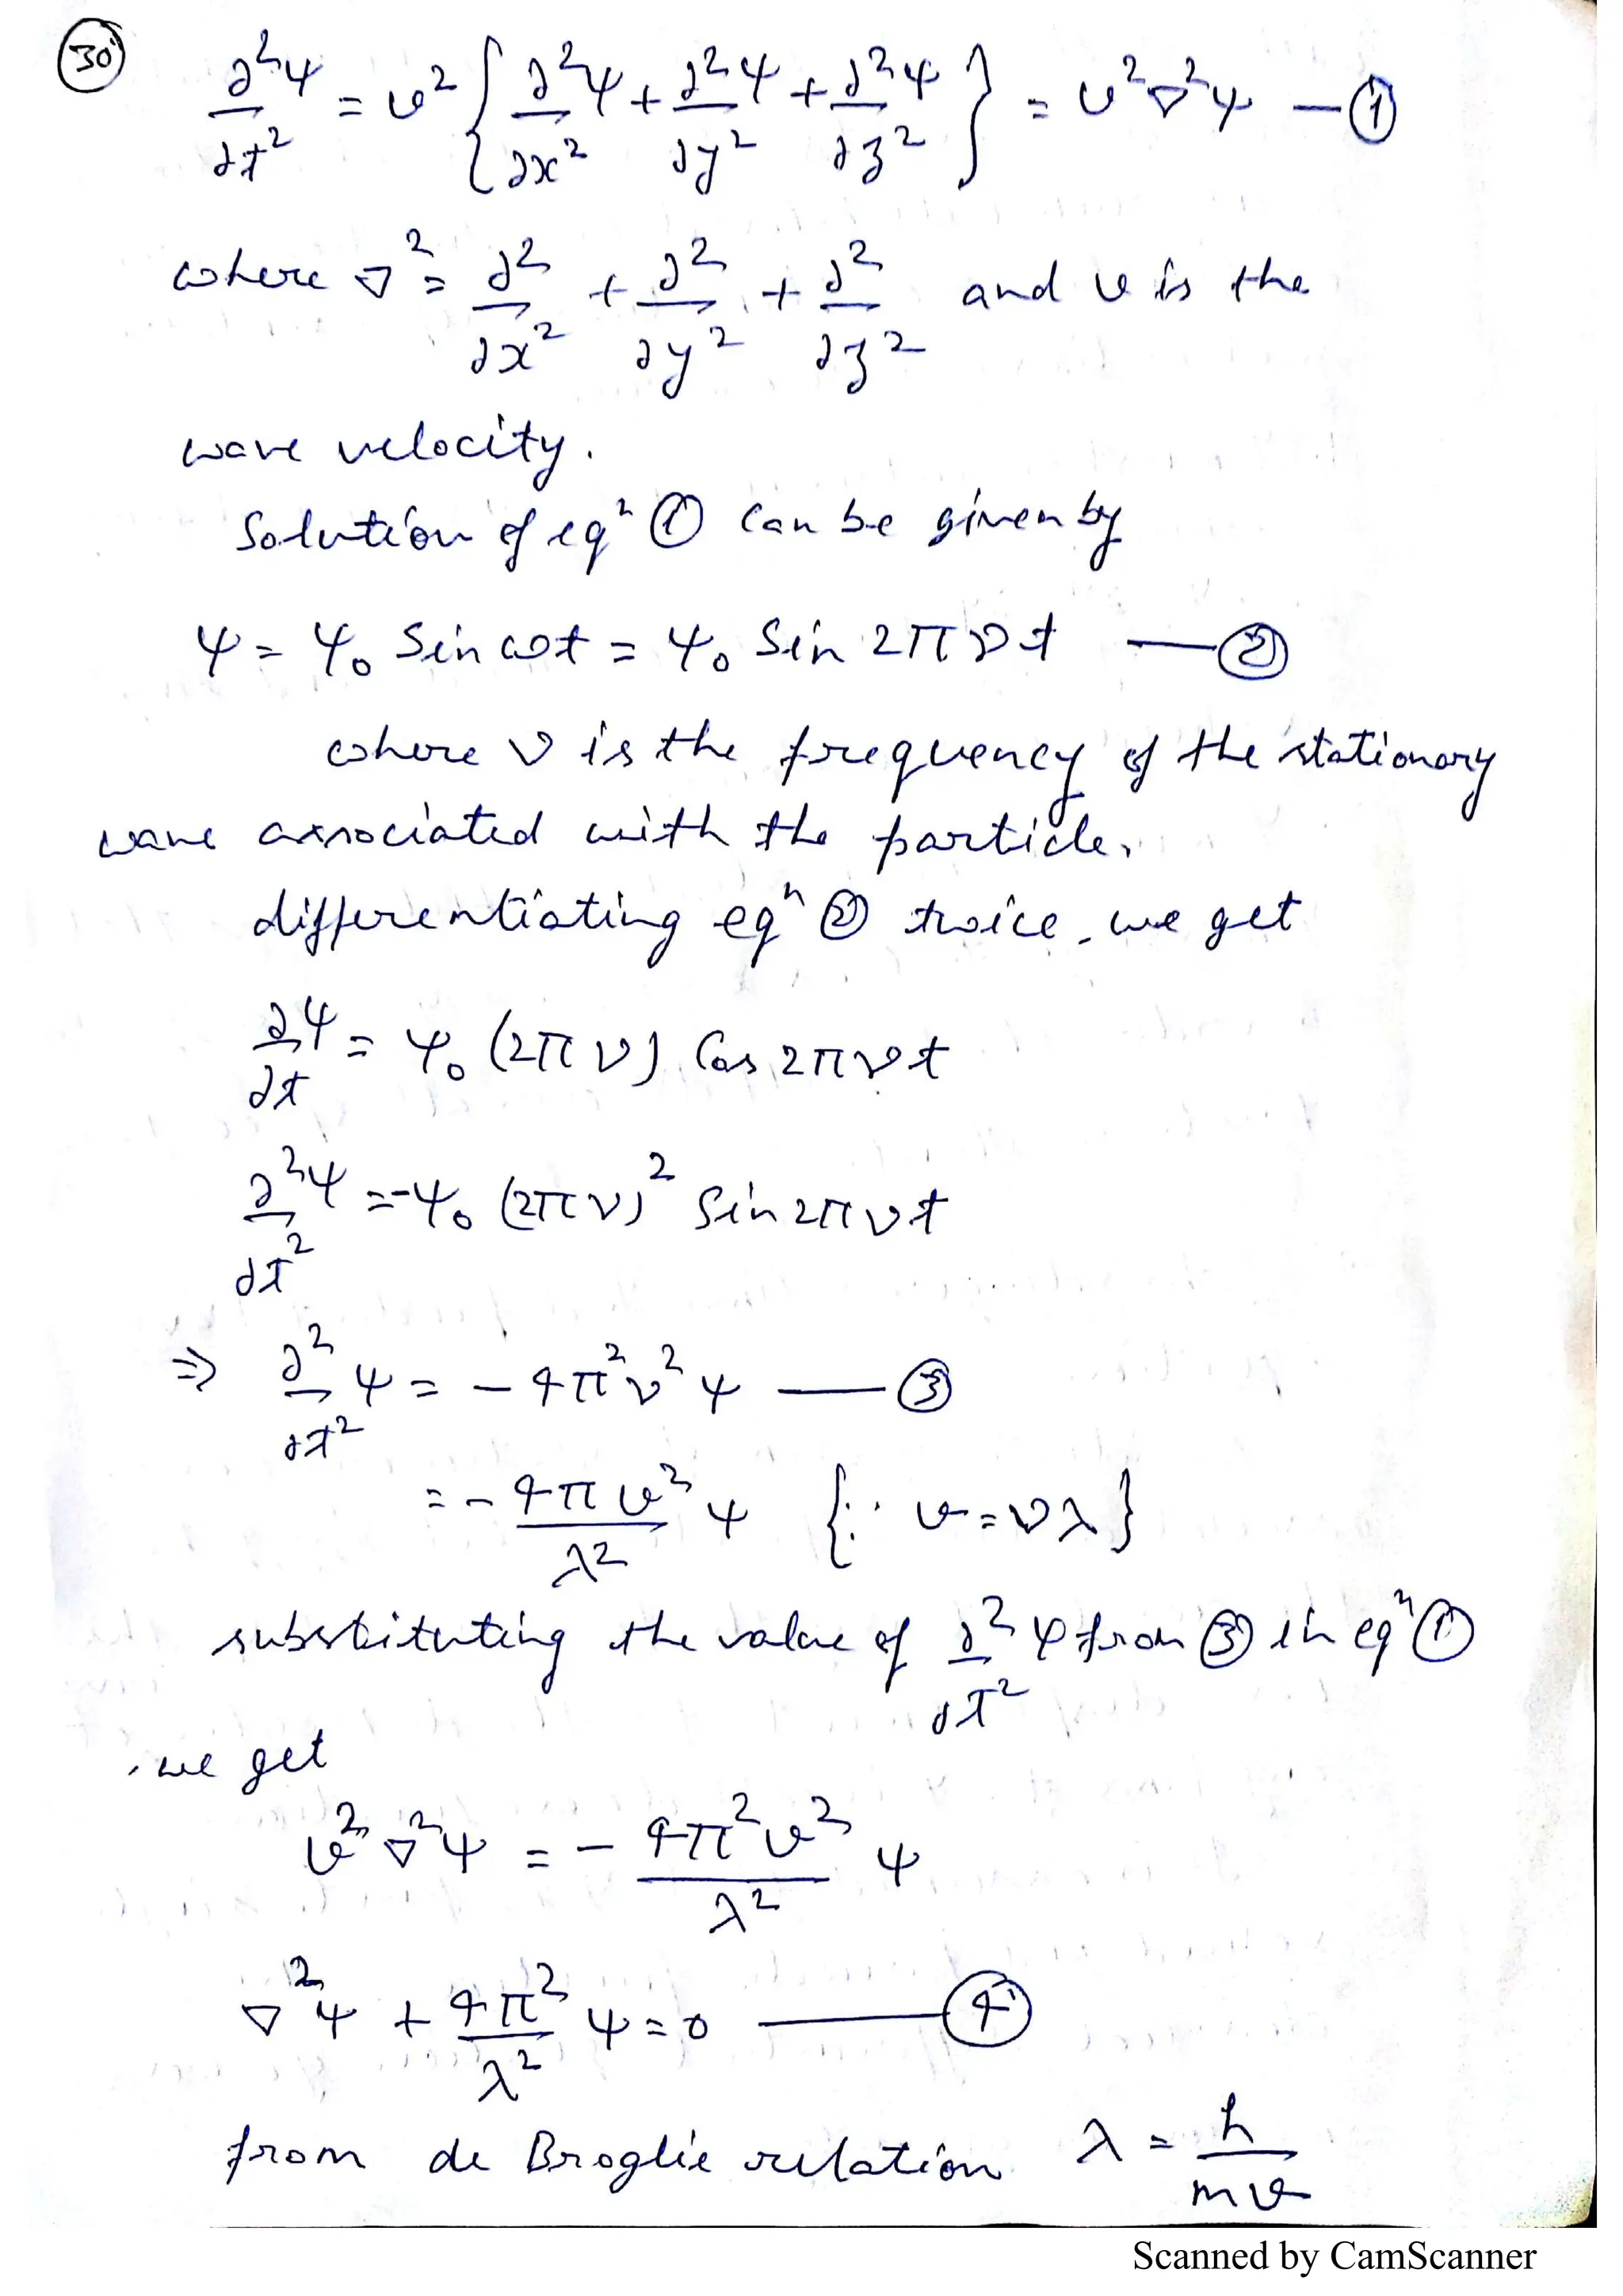 30
∂²ψ/∂t² = v² { ∂²ψ/∂x² + ∂²ψ/∂y² + ∂²ψ/∂z² } = v²∇²ψ — ①
where ∇² = ∂²/∂x² + ∂²/∂y² + ∂²/∂z² and v is the
wave velocity.
Solution of eqⁿ ① can be given by
ψ = ψ₀ Sin ωt = ψ₀ Sin 2πνt — ②
where ν is the frequency of the stationary
wave associated with the particle.
differentiating eqⁿ ② twice, we get
∂ψ/∂t = ψ₀ (2πν) Cos 2πνt
∂²ψ/∂t² = -ψ₀ (2πν)² Sin 2πνt
⇒ ∂²/∂t² ψ = - 4π²ν²ψ — ③
= - 4πv²/λ² ψ {∵ v = νλ}
substituting the value of ∂²/∂t² ψ from ③ in eqⁿ ①
we get
v²∇²ψ = - 4π²v²/λ² ψ
∇²ψ + 4π²/λ² ψ = 0 — ④
from de Broglie relation λ = h/mv
Scanned by CamScanner